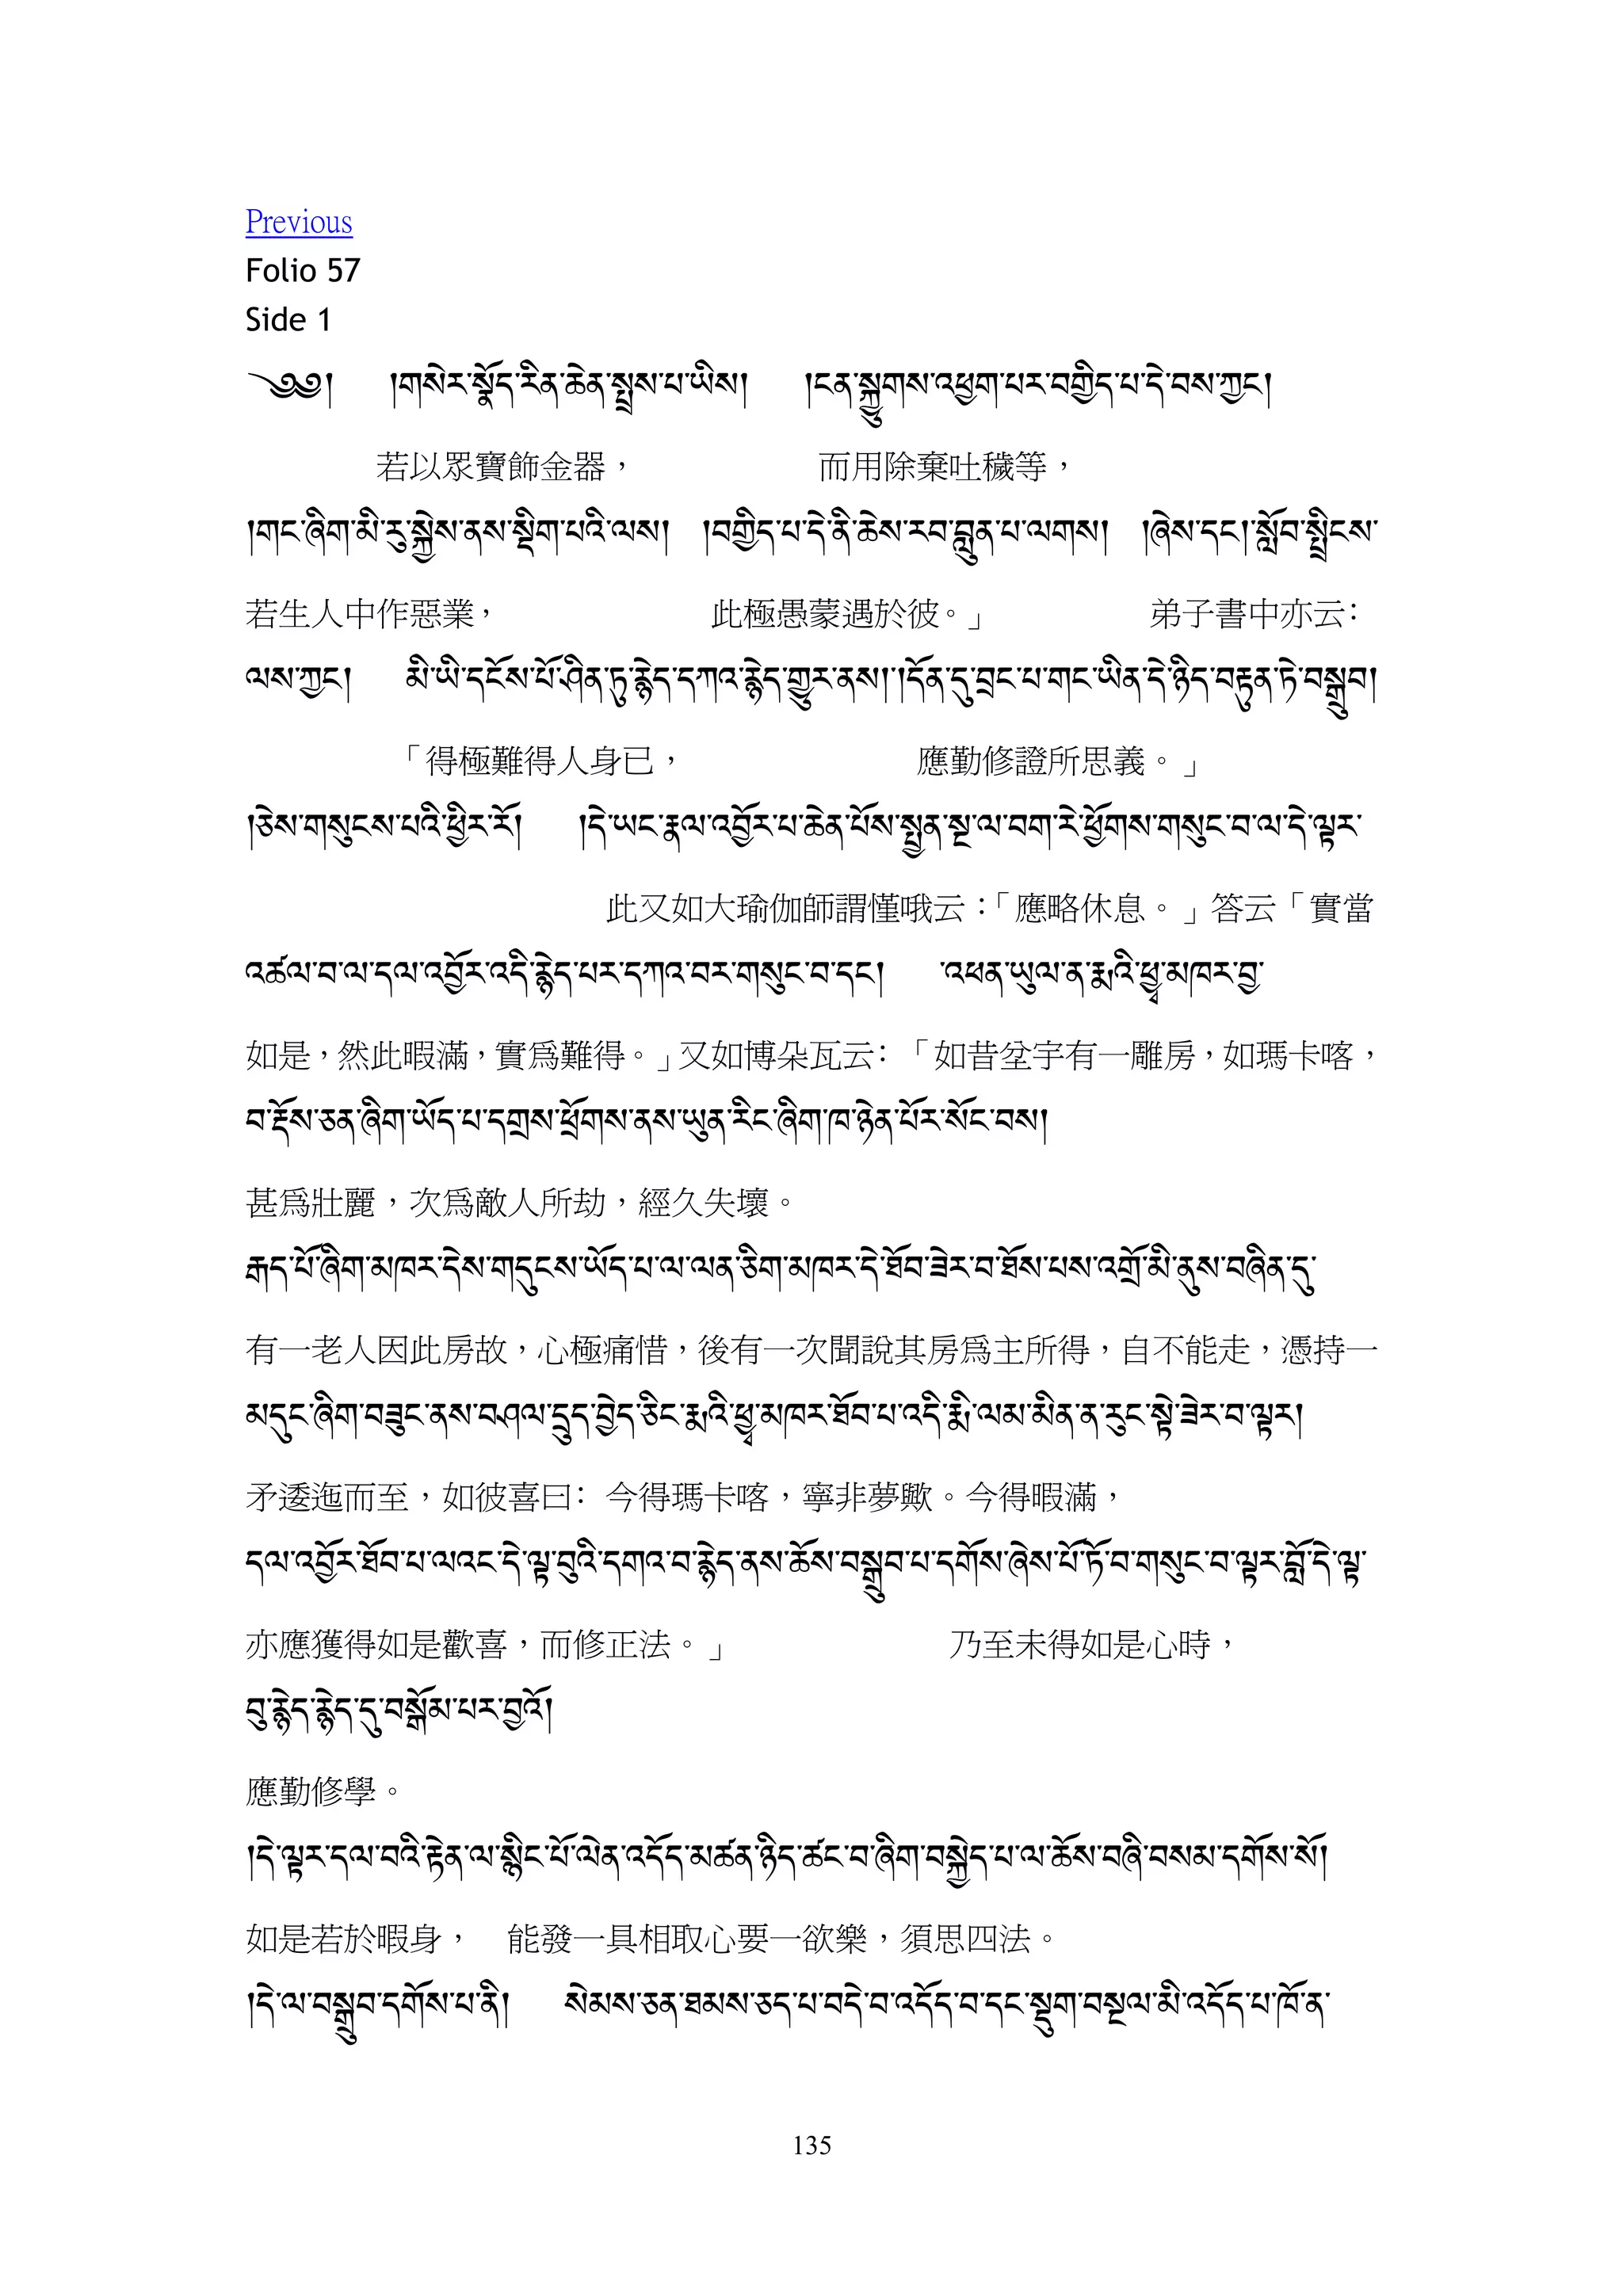 Previous
Folio 57
Side 1
༄༅། །གསེར་སྣོད་རིན་ཆེན་སྤྲས་པ་ཡིས། །ངན་སྐྱུགས་འཕྱག་པར་བགྱིད་པ་དེ་བས་ཀྱང་།
若以眾寶飾金器， 而用除棄吐穢等，
།གང་ཞིག་མི་རུ་སྐྱེས་ནས་སྡིག་པའི་ལས། །བགྱིད་པ་དེ་ནི་ཆེས་རབ་བླུན་པ་ལགས། །ཞེས་དང་། སློབ་སྤྲིངས་
若生人中作惡業， 此極愚蒙遇於彼。」 弟子書中亦云：
ལས་ཀྱང་། མི་ཡི་དངོས་པོ་ཤིན་ཏུ་རྙེད་དཀའ་རྙེད་གྱུར་ནས། །དོན་དུ་བྲང་པ་གང་ཡིན་དེ་ཉིད་བརྟུན་ཏེ་བསྒྲུབ།
「得極難得人身已， 應勤修證所思義。」
།ཅེས་གསུངས་པའི་ཕྱིར་རོ། །དེ་ཡང་རྣལ་འབྱོར་པ་ཆེན་པོས་སྤྱན་སྔ་ལ་བག་རེ་ཕྱོགས་གསུང་བ་ལ་དེ་ལྟར་
此又如大瑜伽師謂慬哦云：「應略休息。」答云「實當
འཚལ་བ་ལ་དལ་འབྱོར་འདི་རྙེད་པར་དཀའ་བར་གསུང་བ་དང་། འཕན་ཡུལ་ན་རྨའི་ཕྱྭ་མཁར་བྱ་
如是，然此暇滿，實爲難得。」又如博朵瓦云：「如昔坌宇有一雕房，如瑪卡喀，
བ་རྡོས་ཅན་ཞིག་ཡོད་པ་དགྲས་ཕྲོགས་ནས་ཡུན་རིང་ཞིག་ཁ་ཉེན་པོར་སོང་བས།
甚爲壯麗，次爲敵人所劫，經久失壞。
རྒད་པོ་ཞིག་མཁར་དེས་གདུངས་ཡོད་པ་ལ་ལན་ཅིག་མཁར་དེ་ཐོབ་ཟེར་བ་ཐོས་པས་འགྲོ་མི་ནུས་བཞིན་དུ་
有一老人因此房故，心極痛惜，後有一次聞說其房爲主所得，自不能走，憑持一
མདུང་ཞིག་བཟུང་ནས་བ་ཤལ་དྲུད་བྱེད་ཅིང་རྨའི་ཕྱྭ་མཁར་ཐོབ་པ་འདི་རྨི་ལམ་མིན་ན་རུང་སྟེ་ཟེར་བ་ལྟར།
矛逶迤而至，如彼喜曰：今得瑪卡喀，寧非夢歟。今得暇滿，
དལ་འབྱོར་ཐོབ་པ་ལའང་དེ་ལྟ་བུའི་དགའ་བ་རྙེད་ནས་ཆོས་བསྒྲུབ་པ་དགོས་ཞེས་པོ་ཏོ་བ་གསུང་བ་ལྟར་བློ་དེ་ལྟ་
亦應獲得如是歡喜，而修正法。」 乃至未得如是心時，
བུ་རྙེད་རྙེད་དུ་བསྒོམ་པར་བྱའོ།
應勤修學。
།དེ་ལྟར་དལ་བའི་རྟེན་ལ་སྙིང་པོ་ལེན་འདོད་མཚན་ཉིད་ཚང་བ་ཞིག་བསྐྱེད་པ་ལ་ཆོས་བཞི་བསམ་དགོས་སོ།
如是若於暇身， 能發一具相取心要一欲樂，須思四法。
།དེ་ལ་བསྒྲུབ་དགོས་པ་ནི། སེམས་ཅན་ཐམས་ཅད་པ་བདེ་བ་འདོད་བ་དང་སྡུག་བསྔལ་མི་འདོད་པ་ཁོ་ན་
135